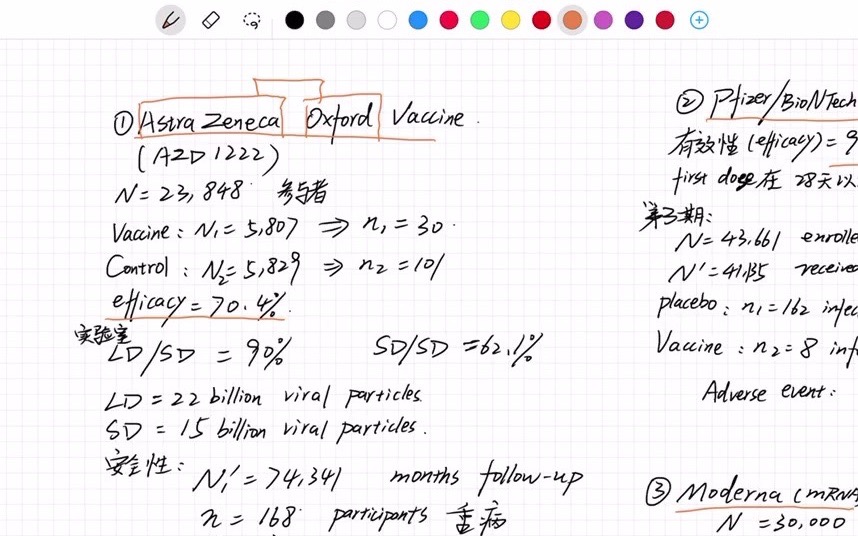 ① AstraZeneca Oxford Vaccine.
(AZD1222)
N = 23,848 参与者
Vaccine: N₁ = 5,807 ⇒ n₁ = 30.
Control: N₂ = 5,829 ⇒ n₂ = 101
efficacy = 70.4%.
实验室
LD/SD = 90% SD/SD = 62.1%
LD = 22 billion viral particles.
SD = 15 billion viral particles.
安全性: N₁' = 74,341 months follow-up
n = 168 participants 重病
② Pfizer/BioNTech
有效性 (efficacy) = 9
first dose 在 28天以
第3期:
N = 43,661 enrolle
N' = 41,135 received
placebo: n₁ = 162 infec
Vaccine: n₂ = 8 inf
Adverse event:
③ Moderna (mRNA
N = 30,000